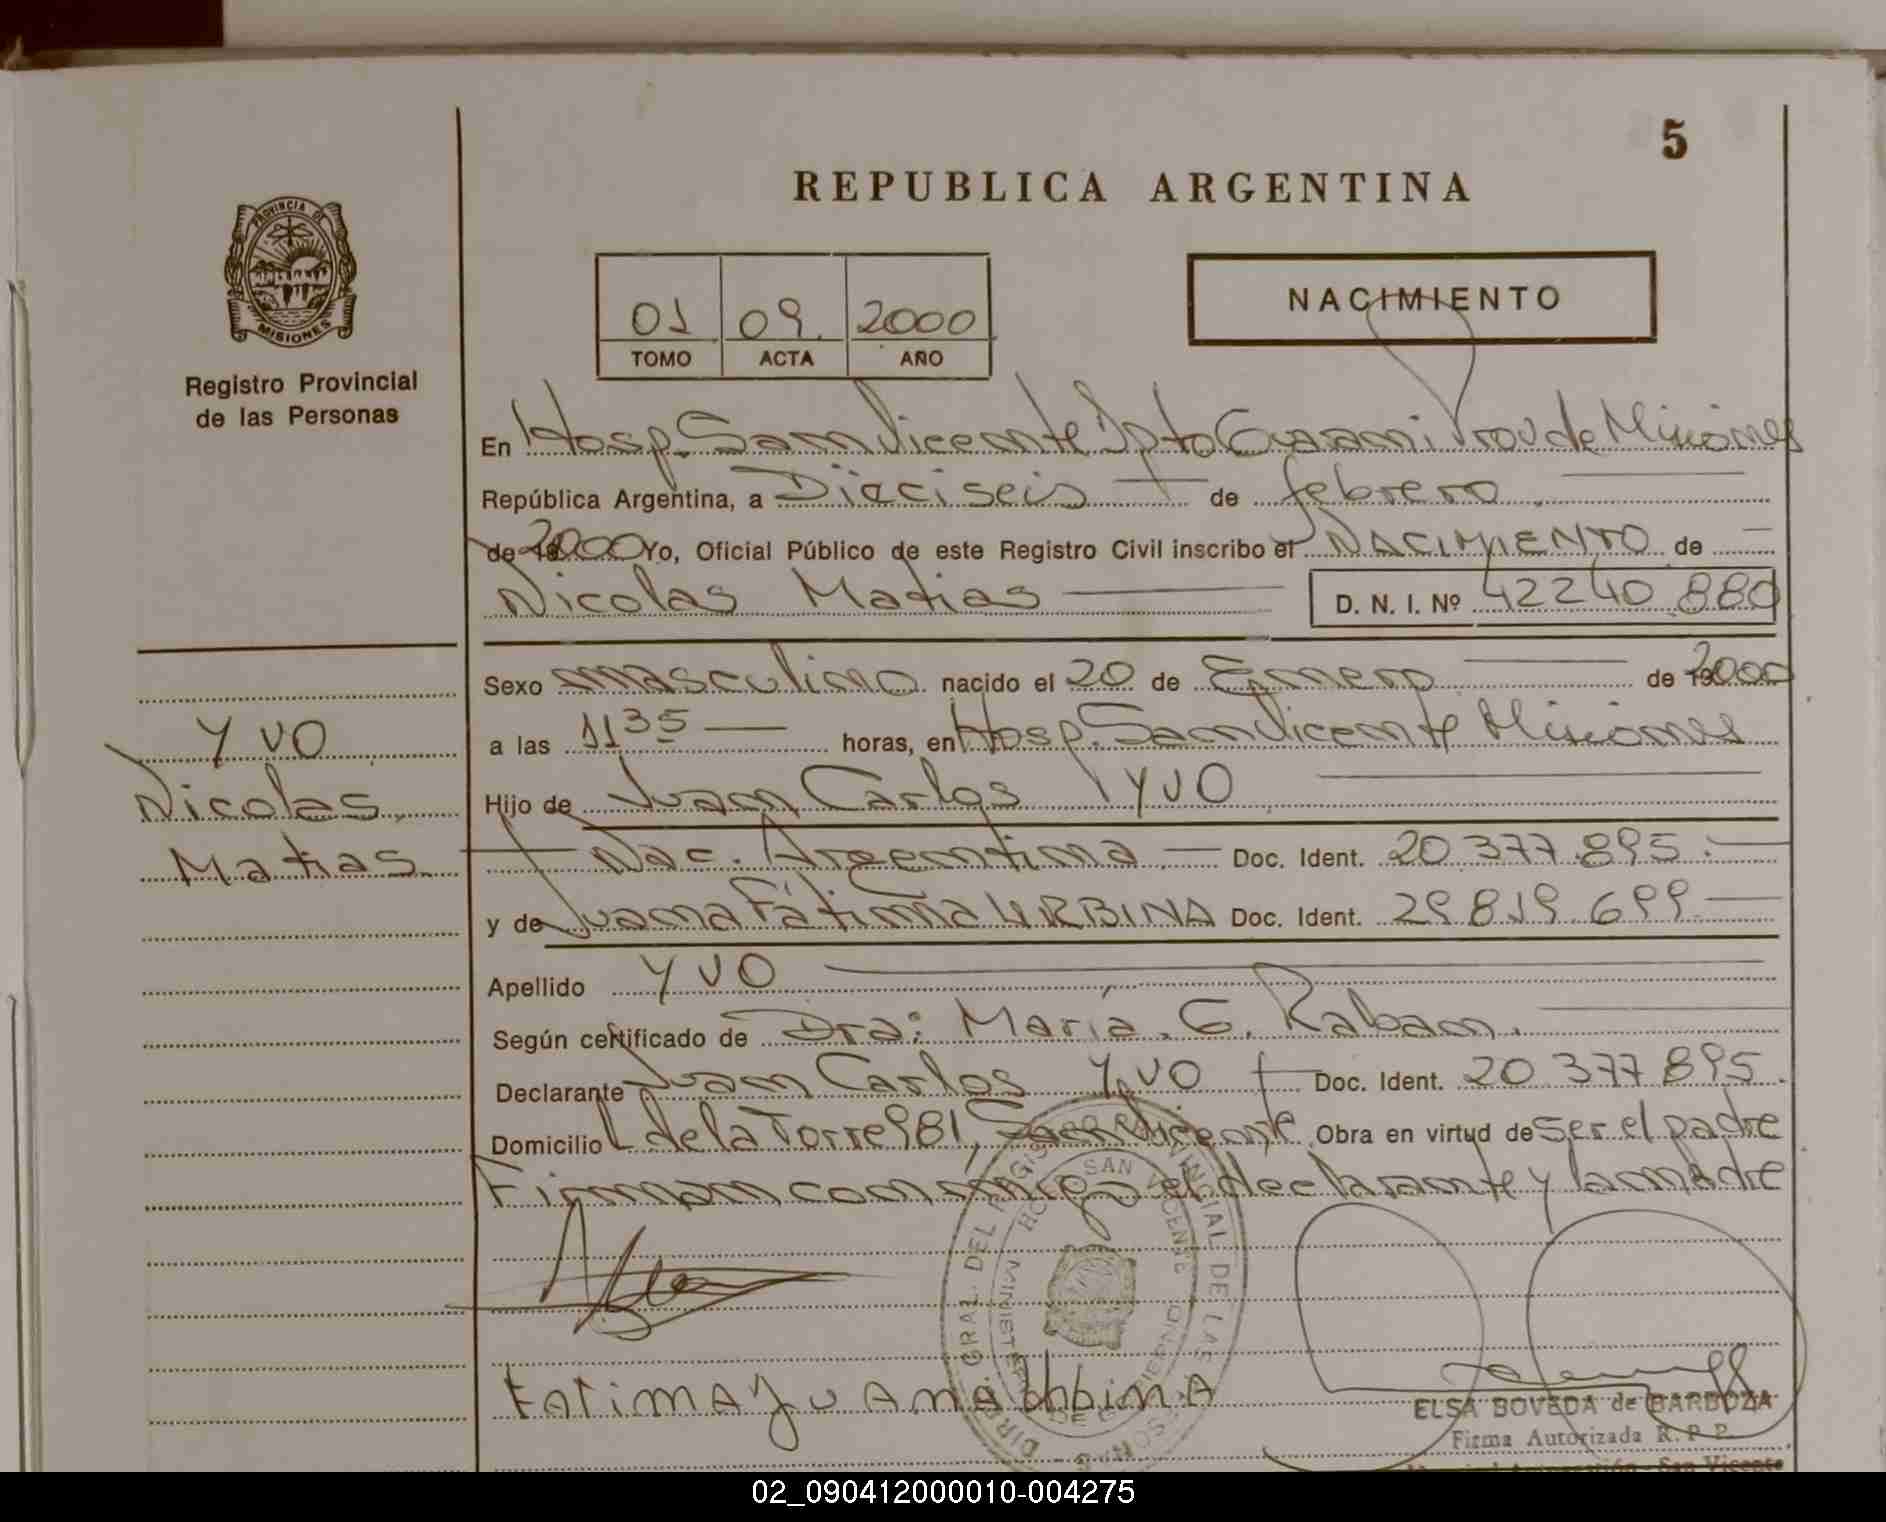 5
REPUBLICA ARGENTINA
PROVINCIA DE
MISIONES
Registro Provincial
de las Personas
01 09. 2000
TOMO ACTA AÑO
NACIMIENTO
En Hosp. San Vicente Dpto Guarani Prov de Misiones
República Argentina, a Dieciseis de febrero
de 2000 Yo, Oficial Público de este Registro Civil inscribo el NACIMIENTO de
Nicolas Matias
D. N. I. Nº 42240.880
Sexo masculino nacido el 20 de Enero de 2000
a las 11 35 horas, en Hosp. San Vicente Misiones
Hijo de Juan Carlos YVO
Nac. Argentina. Doc. Ident. 20.377.895.
y de Juana Fátima URBINA Doc. Ident. 29.819.699
Apellido YVO
Según certificado de Dra: María. G. Raban.
Declarante Juan Carlos YVO Doc. Ident. 20.377.895.
Domicilio L de la Torre 981, San Vicente Obra en virtud de ser el padre
Firman conmigo el declarante y la madre
YVO
Nicolas
Matias
DIRC. GRAL. DEL REGISTRO PROVINCIAL DE LAS
HOSP. SAN VICENTE
MINISTERIO DE GOBIERNO
Fatima Juana Urbina
ELSA BOVEDA de BARBOZA
Firma Autorizada R. P. P.
San Vicente
02_090412000010-004275